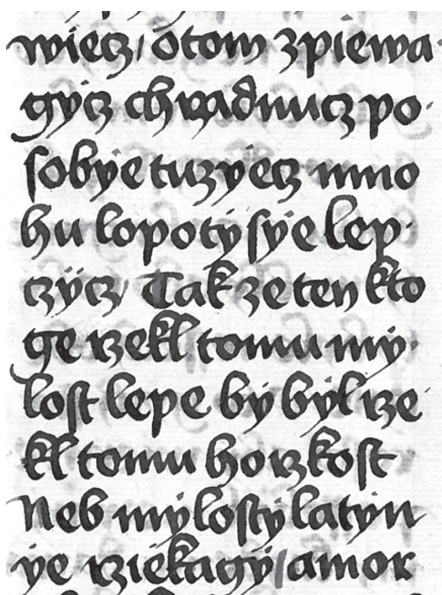 wiecz / Otom zpiewa
gycz chwadnucz po
sobye tuzyecz mno
hu lopoty sye lep
czycz / Tak ze ten kto
ge rzekl tomu my
lost lepe by byl rze
kl tomu horzkost
Neb mylosty latyn
ye rziekagy / amor